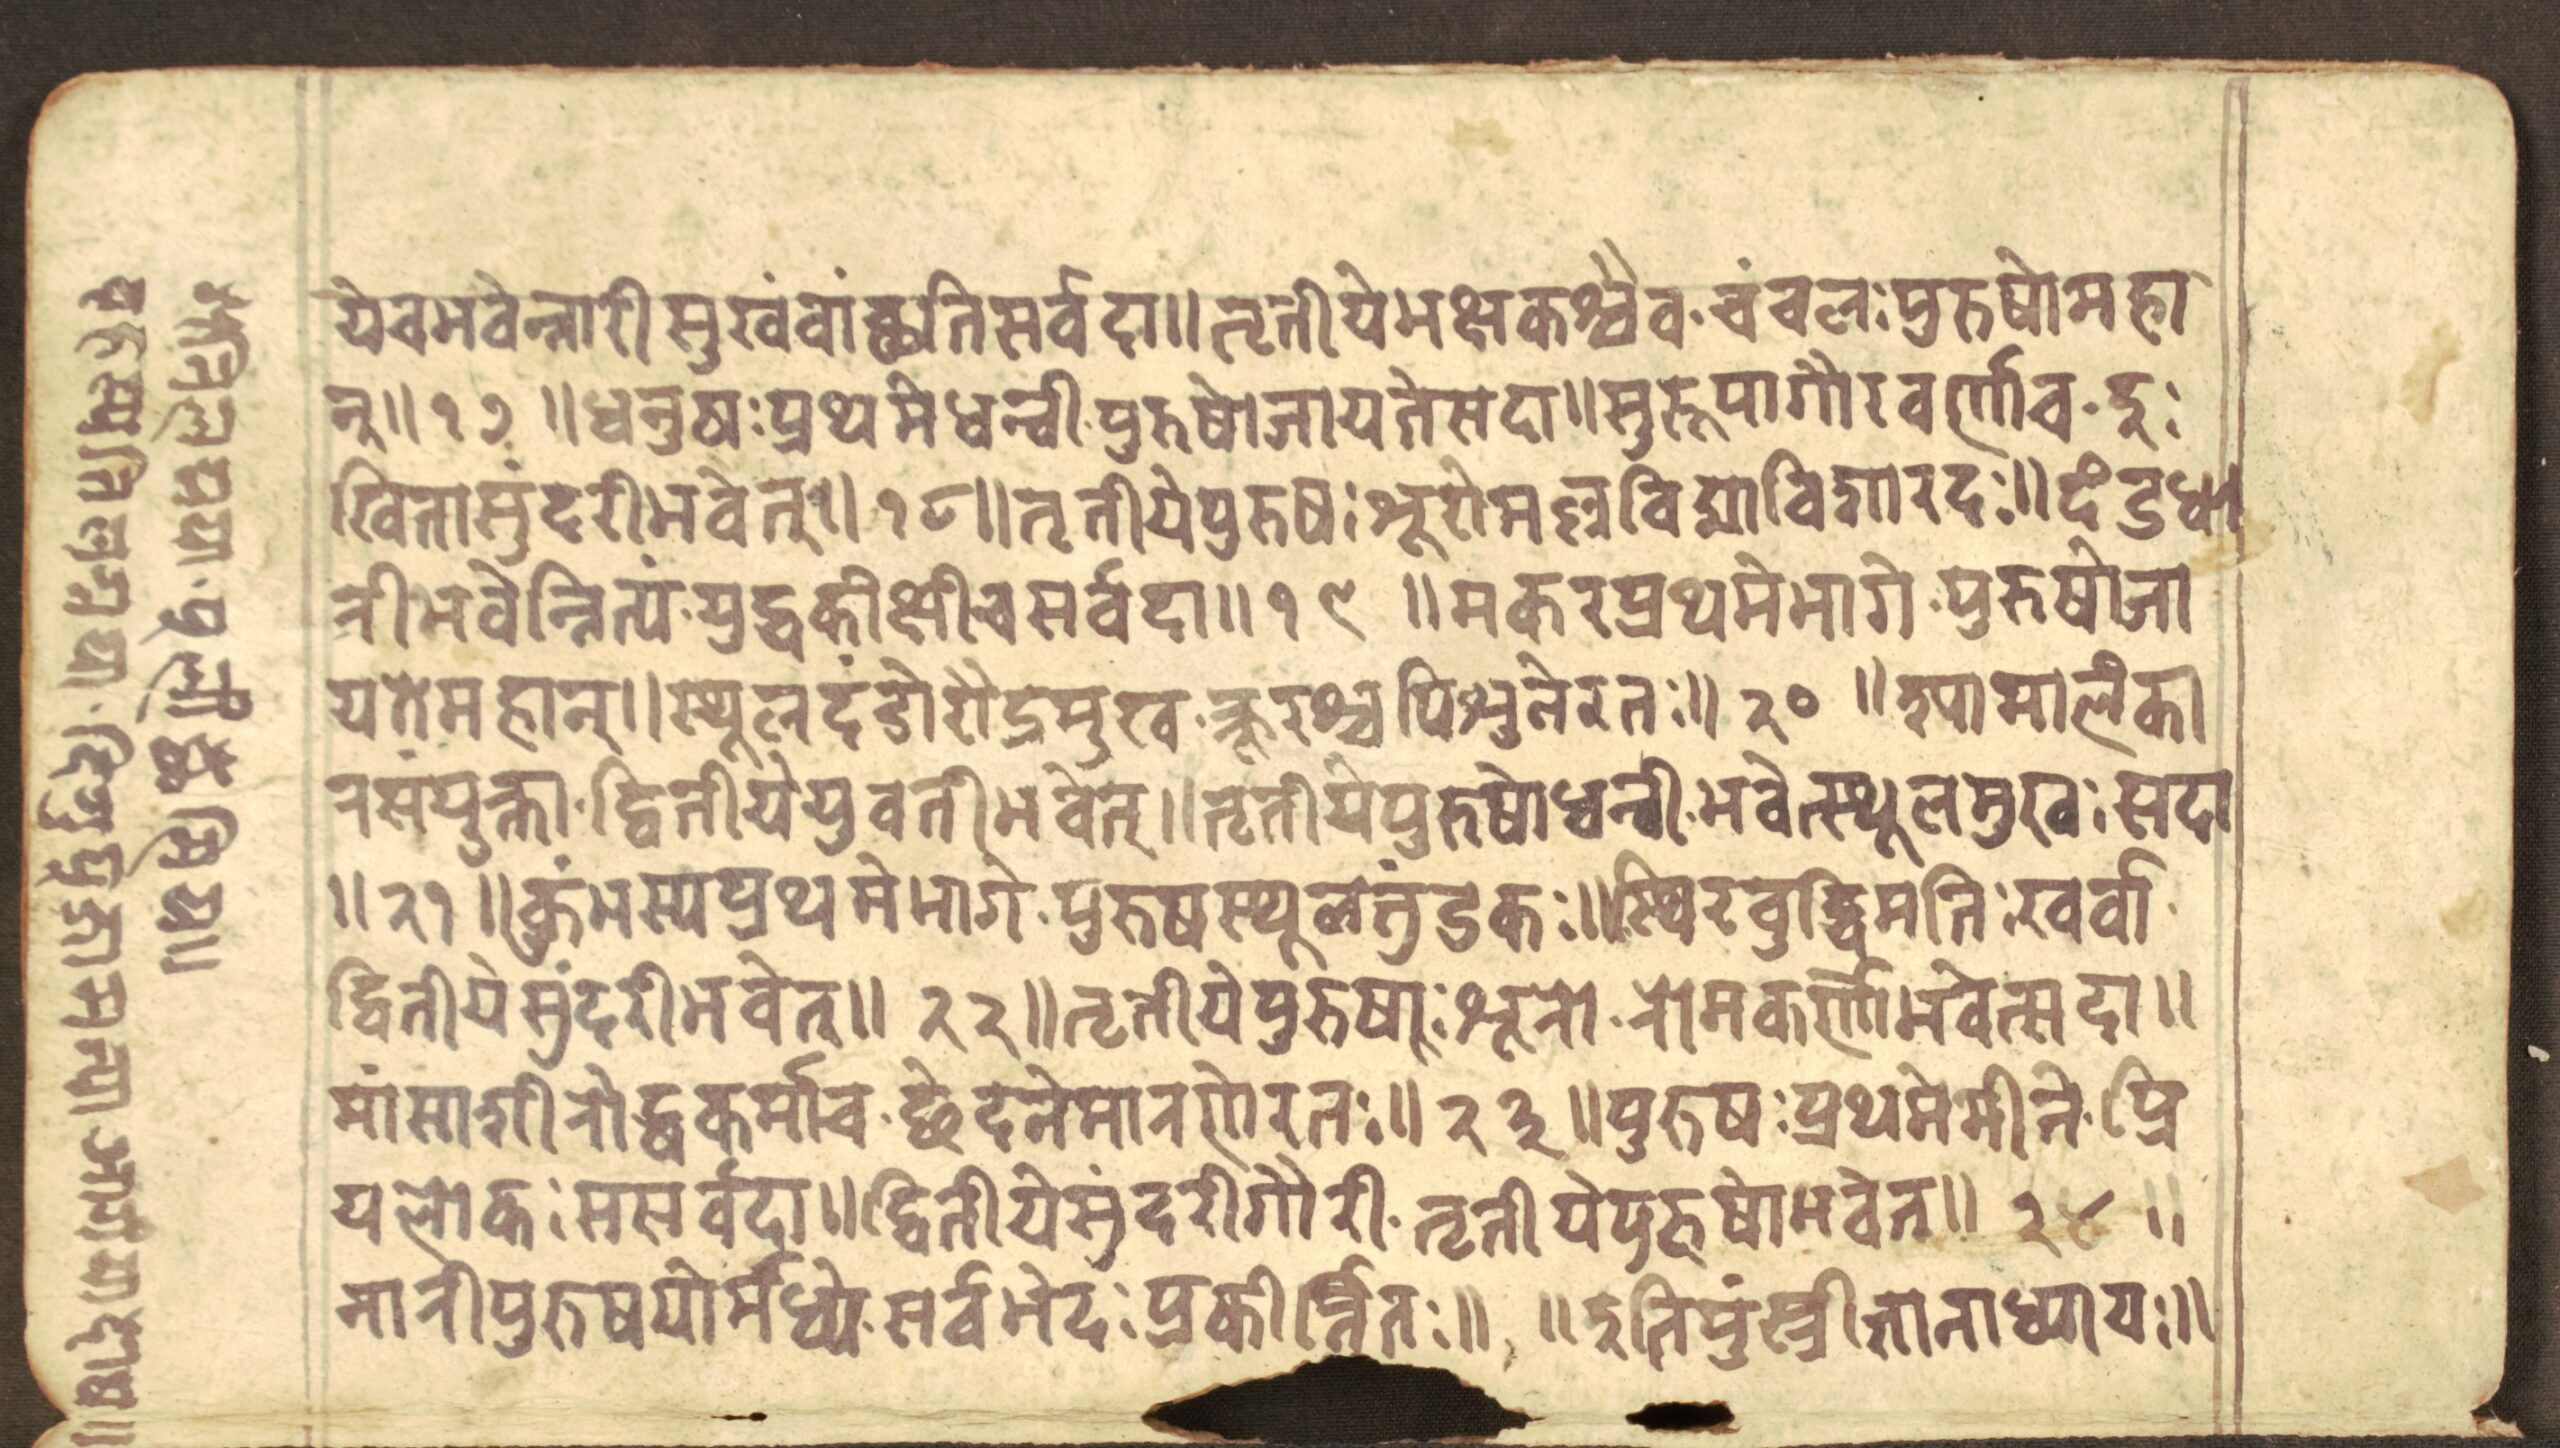 येवमवेन्नारीसुखंवांछतिसर्वदा॥तृतीयेमक्षकश्चैव·चंचलःपुरुषोमहा
न्॥१७॥धनुषःप्रथमेधन्वी·पुरुषोजायतेसदा॥सुरूपागौरवर्णाच·दुः
खितासुंदरीभवेत्॥१८॥तृतीयेपुरुषःशूरोमल्लविद्याविशारदः॥दंडधा
रीभवेन्नित्यं·युद्धकांक्षीचसर्वदा॥१९॥मकरप्रथमेभागे·पुरुषोजा
यतेमहान्॥स्थूलदंडोरौद्रमुख·क्रूरश्चपिशुनेरतः॥२०॥श्यामालंका
रसंयुक्ता·द्वितीयेयुवतीभवेत्॥तृतीयेपुरुषोधन्वी·भवेत्स्थूलमुखःसदा
॥२१॥कुंभस्यप्रथमेभागे·पुरुषस्थूलतंुडकः॥स्थिरबुद्धिमतिःखर्वा·
द्वितीयेसुंदरीभवेत्॥२२॥तृतीयेपुरुषाःशूरो·रोमकर्णोभवेत्सदा॥
मांसाशीरौद्धकर्माच·छेदनेमारणोरतः॥२३॥पुरुषःप्रथमेमीने·प्रि
यलोकःससर्वदा॥द्वितीयेसुंदरीगौरी·तृतीयेपुरुषोभवेत्॥२४॥
नारीपुरुषयोर्मध्ये·सर्वभेदःप्रकीर्त्तितः॥ ॥इतिपुंस्त्रीज्ञानाध्यायः॥